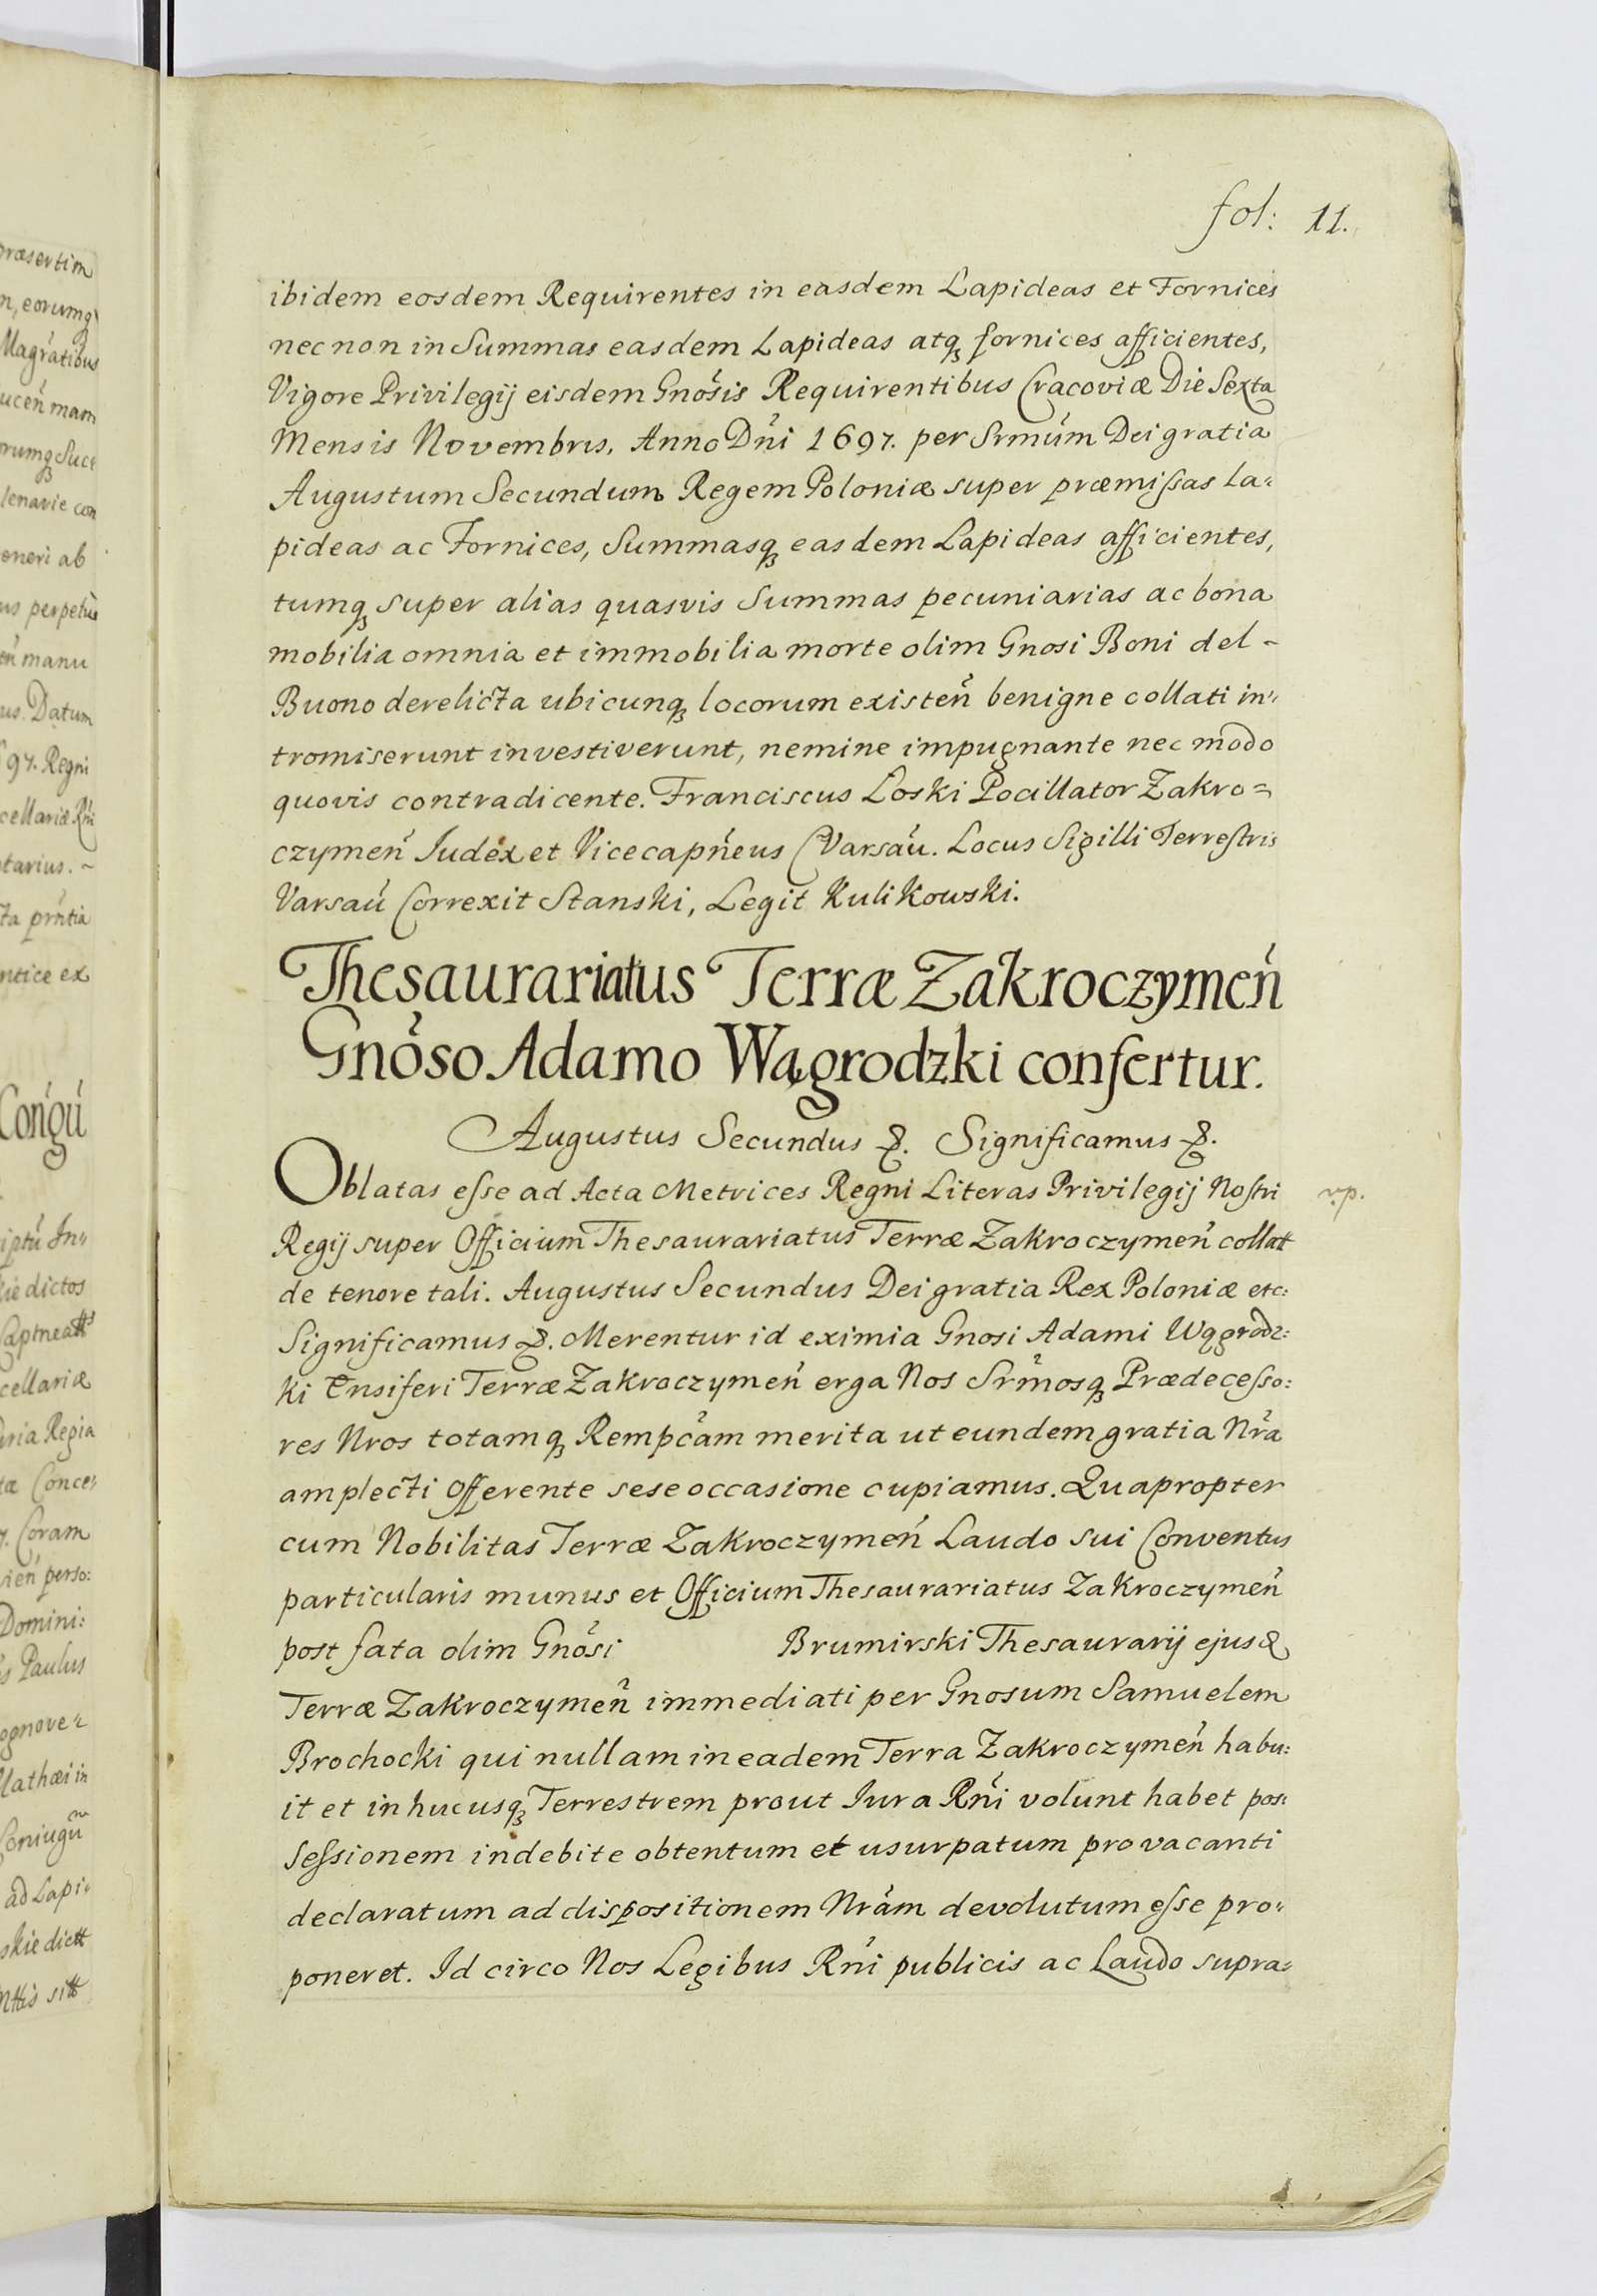 præsertim
n, eorumq
Magratibus
ucen̄ mam
orumq Succ
lenarie con
eneri ab
us perpetuis
manu
us. Datum
97. Regni
cellariæ Rni
tarius. ~
ta pr̃ntia
ntice ex
Con̄gu
iptu In
kie dictos
cellariæ
uria Regia
tæ Conce
7. Coram
vien̄ perso:
Domini:
s Paulus
ognove
Mathæi in
Coniugū
ad Lapi
skie dictt
sitt
fol: 11.
ibidem eosdem Requirentes in easdem Lapideas et Fornices
nec non in Summas easdem Lapideas atqꝫ fornices afficientes,
Vigore Privilegij eisdem Gnōsis Requirentibus Cracoviæ Die Sexta
Mensis Novembris. Anno Dn̄i 1697. per Srmūm Dei gratia
Augustum Secundum Regem Poloniæ super præmiſsas La:
pideas ac Fornices, Summasqꝫ easdem Lapideas afficientes,
tumqꝫ super alias quasvis Summas pecuniarias ac bona
mobilia omnia et immobilia morte olim Gnosi Boni del-
Buono derelicta ubicunqꝫ locorum existen̄ benigne collati in:
tromiserunt investiverunt, nemine impugnante nec modo
quovis contradicente. Franciscus Łoski Pocillator Zakro=
czymen̄ Iudex et Vicecapn̄eus Varsāu. Locus Sigilli Terreſtris
Varsaū Correxit Stanski, Legit Kulikowski.
Thesaurariatus Terræ Zakroczymen̄
Gnōso Adamo Wągrodzki confertur.
Augustus Secundus ꝛ. Significamus ꝛ.
Oblatas eſse ad Acta Metrices Regni Literas Privilegij Noſtri
vp.
Regij super Officium Thesaurariatus Terræ Zakroczymen̄ collat
de tenore tali. Augustus Secundus Dei gratia Rex Poloniæ etc:
Significamus ꝛ. Merentur id eximia Gnosi Adami Wągrodz:
ki Ensiferi Terræ Zakroczymen̄ erga Nos Srm̄osqꝫ Prædeceſso:
res Nros totamqꝫ Rempc̄am merita ut eundem gratia Nrā
amplecti offerente sese occasione cupiamus. Quapropter
cum Nobilitas Terræ Zakroczymen̄ Laudo sui Conventus
particularis munus et Officium Thesaurariatus Zakroczymen̄
post fata olim Gnōsi Brumirski Thesaurarij ejusꝺ
Terræ Zakroczymen̄ immediati per Gnosum Samuelem
Brochocki qui nullam in eadem Terra Zakroczymen̄ habu:
it et in hucusqꝫ Terrestrem prout Iura Rn̄i volunt habet pos:
seſsionem indebite obtentum et usurpatum pro vacanti
declaratum ad dispositionem Nrām devolutum eſse pro:
poneret. Id circo Nos Legibus Rn̄i publicis ac Laudo supra: